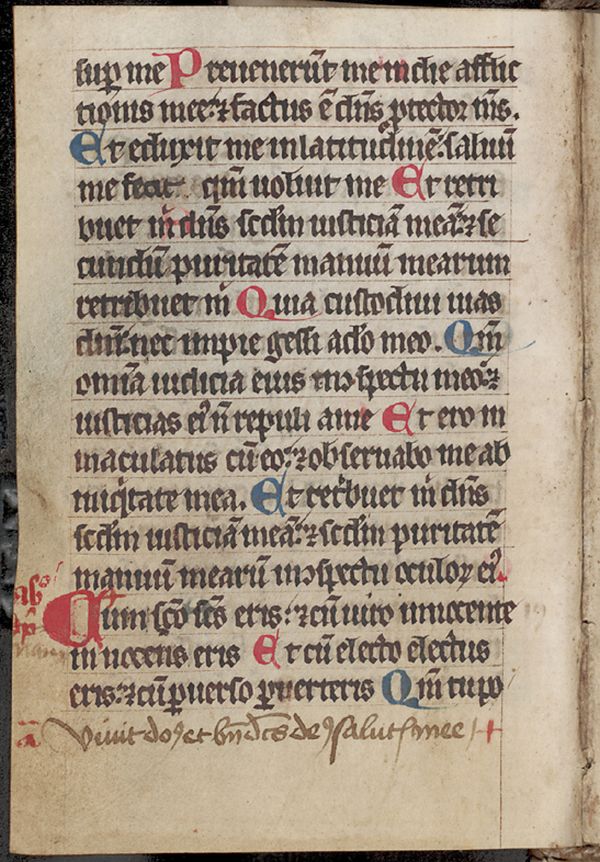 sup̱ me Preuenerūt me in die afflic
tionis mee: ⁊ factus ē dn̄s ꝓtector m̄s.
Et eduxit me in latitudinē: saluū
me fecit qm̄ uoluit me Et retri
buet m̄ dn̄s scd̄m iusticiā meā: ⁊ se
cundū puritatē manuū mearum
retribuet m̄ Quia custodiui uias
dn̄i: nec impie gessi a dō meo. Qm̄
omīa iudicia eius in ꝯspectu meo: ⁊
iusticias eiꝰ n̄ repuli a me Et ero im
maculatus cū eo: ⁊ obseruabo me ab
iniq̄tate mea. Et ret̄buet m̄ dn̄s
scd̄m iusticiā meā: ⁊ scd̄m puritatē
manuū mearū in ꝯspectu oculoꝝ eiꝰ
Cum sc̄o sc̄s eris: ⁊ cū uiro innocente
innocens eris Et cū electo electus
eris: ⁊ cū ꝑuerso ꝑuerteris Qm̄ tu po
a Viuit do’ et bn̄dc̄s de’ salut’ mee